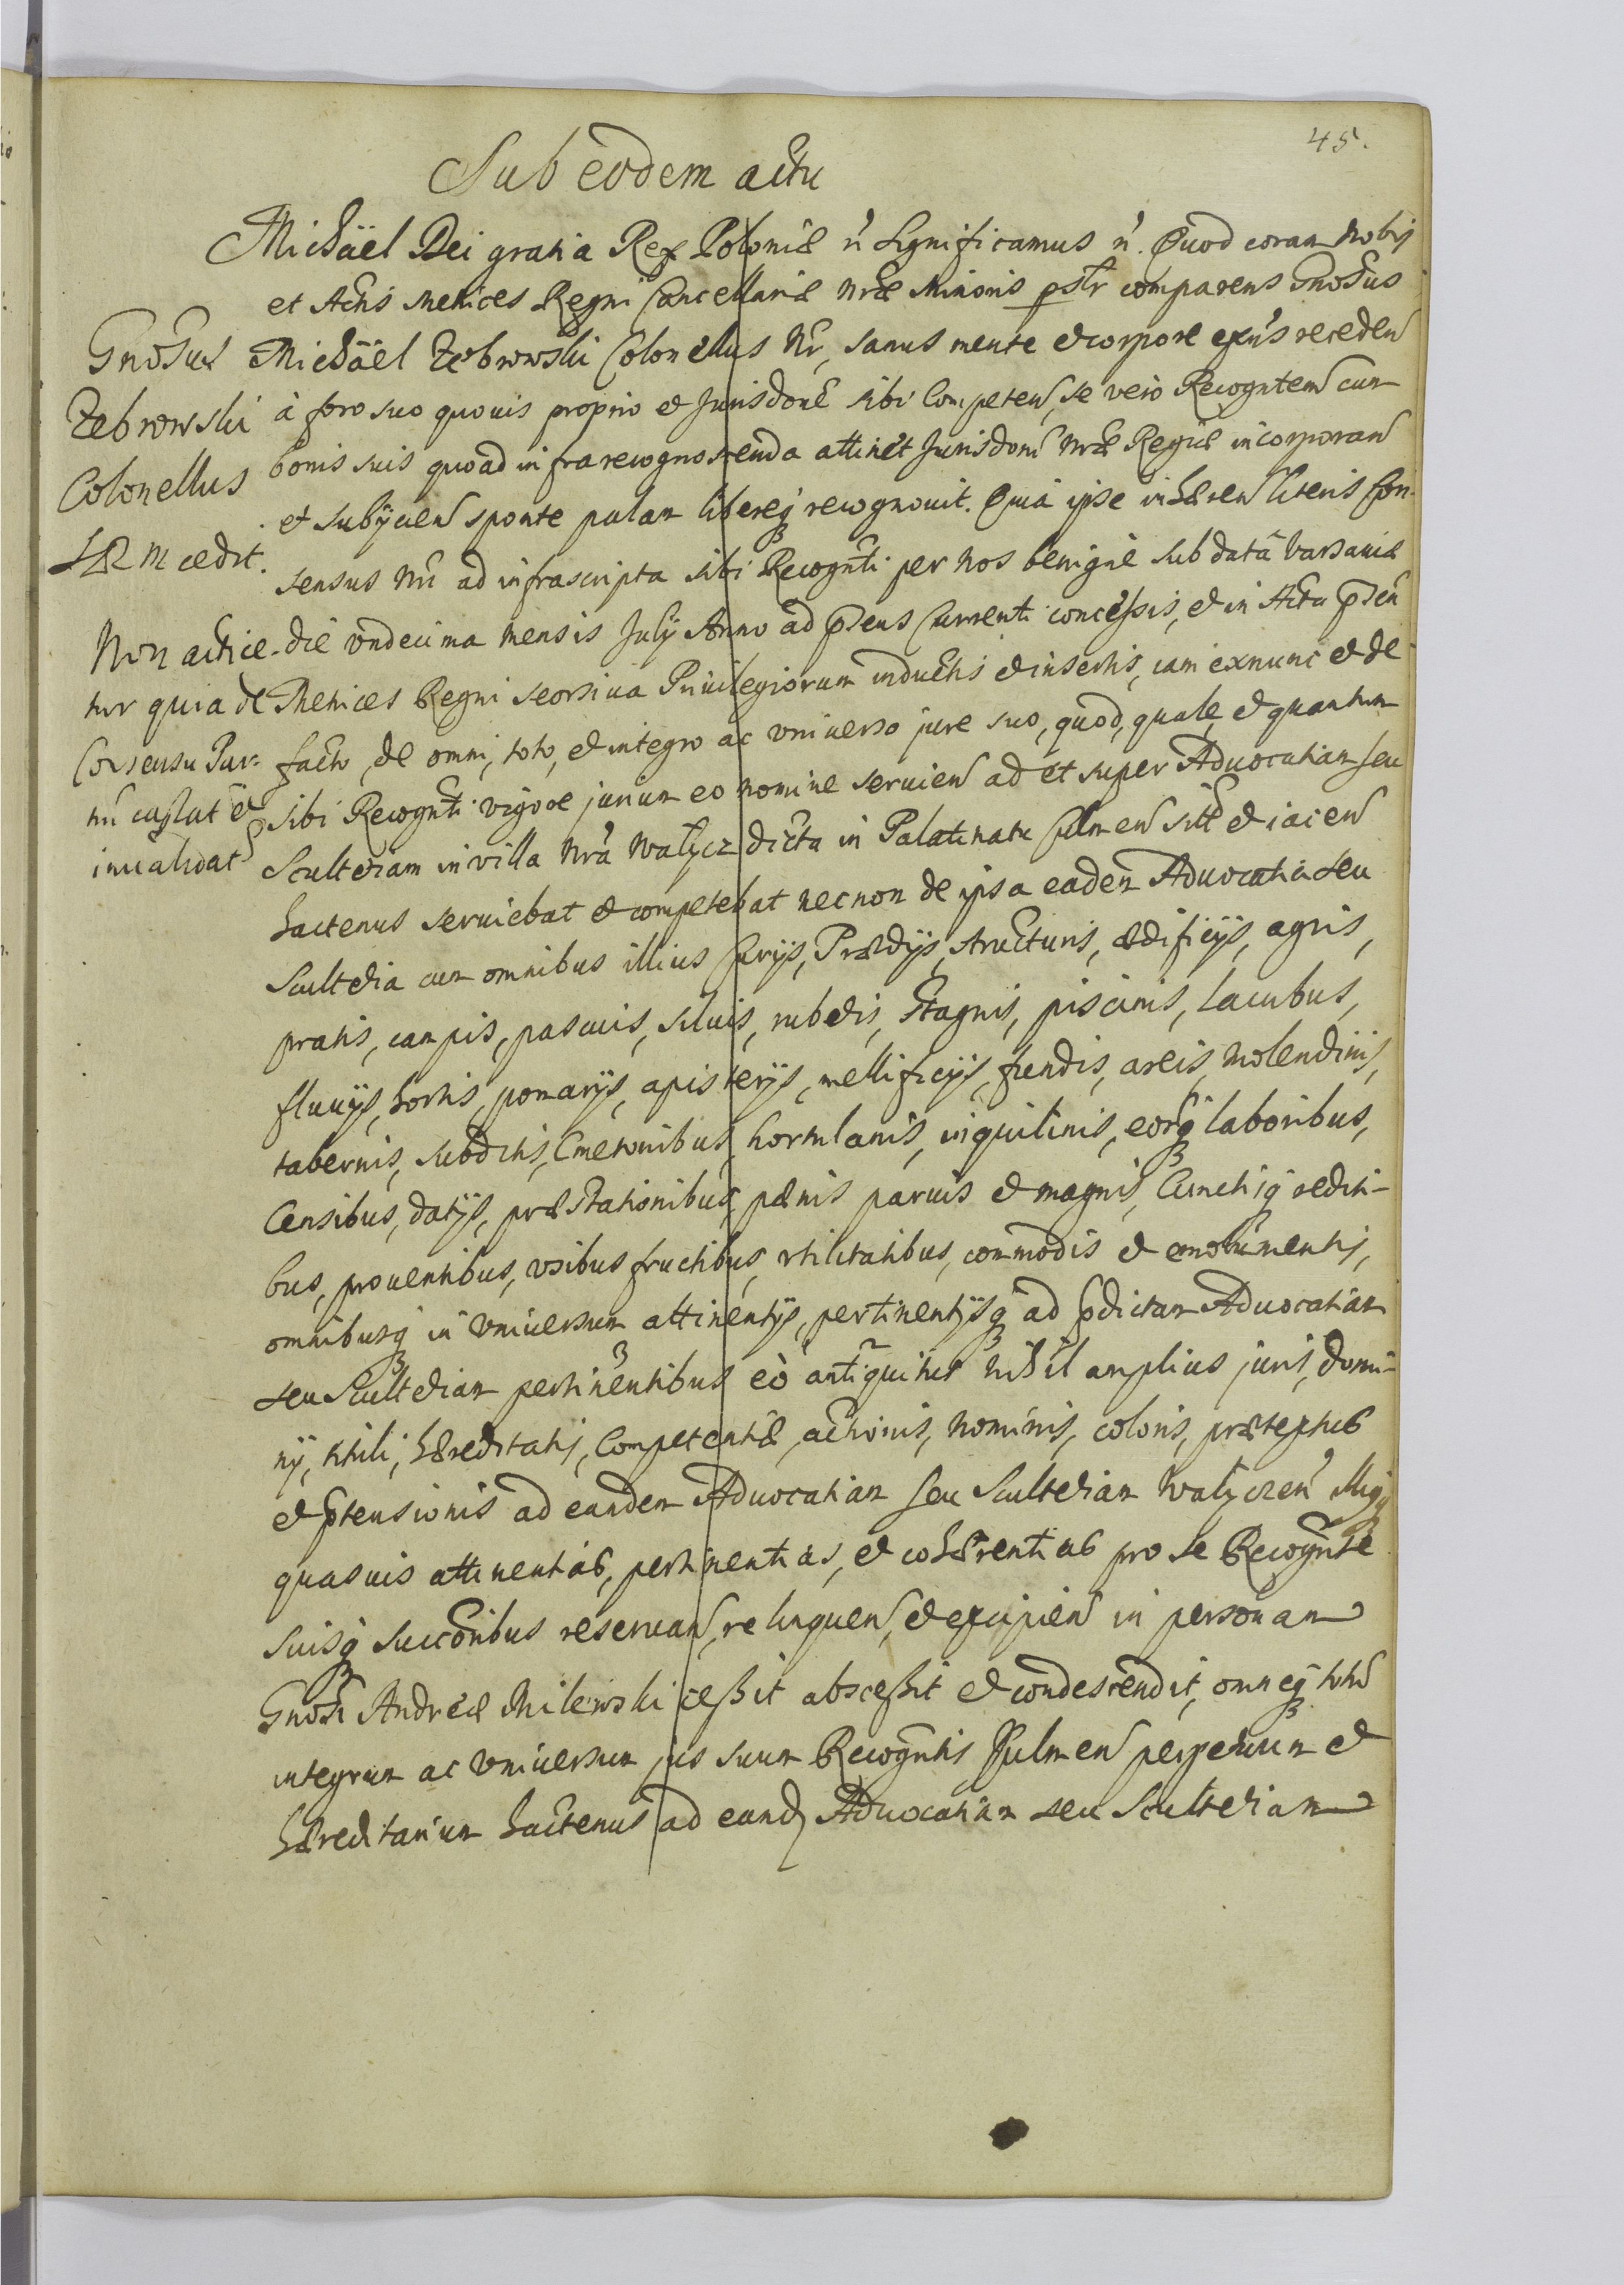 45.
Sub eodem actu
Michäel Dei gratia Rex Poloniæ &c Significamus &c. Quod coram Nobis
et Actis Metrices Regni Cancellariæ Nræ Minoris pstr comparens Gnosus
Michäel Zebrowski Colonellus Nr, sanus mente et corpore exñs receden
à foro suo quovis proprio et Jurisdone sibi Competen, se vero Recogntem cum
bonis suis quoad infrarecognoscenda attinet Jurisdoni Nræ Regiæ incorporan
et subijcien sponte palam libereq recognouit. Quia ipse inhæren literis Con-
sensus Nri ad infrascripta sibi Recognti per Nos benigne sub datâ Varsaviæ
die undecima mensis Julij Anno ad præns Currenti concessis, et in Acta præn
Metrices Regni seorsiva Privilegiorum inductis et insertis, iam exnunc et de
facto, de omni, toto, et integro ac universo jure suo, quod, quale, et quantum
sibi Recognti vigore jurium eo nomine servien ad et super Advocatiam seu
Scultetiam in villa Nrâ Walycz dicta in Palatinatu Culmen sitt et iacen
hactenus serviebat et competebat necnon de ipsa eadem Advocatia seu
Scultetia cum omnibus illius Curijs, Prædijs, structuris, ædificijs, agris,
pratis, campis, pascuis, silvis, rubetis, stagnis, piscinis, lacubus,
fluvijs, hortis, pomarijs, apisterijs, mellificijs, fundis, areis, molendinis,
tabernis, subditis, Cmetonibus, hortulanis, inquilinis, eorq laboribus,
Censibus, datijs, præstationibus, pænis parvis et magnis, Cunctisq reditibus-
bus, proventibus, usibus fructibus, utilitatibus, commodis et emolumentis,
omnibusq in universum attinentijs, pertinentijsq ad prædictam Advocatiam
seu Scultetiam pertinentibus eò antiquitus nihil amplius juris, domi-
nij, tituli, hæreditatis, Competentiæ, actionis, nominis, coloris, prætextus
et prætensionis ad eandem Advocatiam seu Scultetiam Walyczen Illiq
quasvis attinentias, pertinentias, et cohærentias pro se Recognte
suisq succoribus reservan, relinquen, et excipien in personam
Gnosi Andreæ Milewski cessit abscessit et condescendit, omneq totu
integrum ac universum jus suum Recogntis Culmen perpetuum et
hæreditarium hactenus ad eand Advocatiam seu Scultetiam
Gnosus
Zebrowski
Colonellus
SRM cedit.
Non actice-
tur quia de
Consensu Par-
tiū cassat et
invalidat